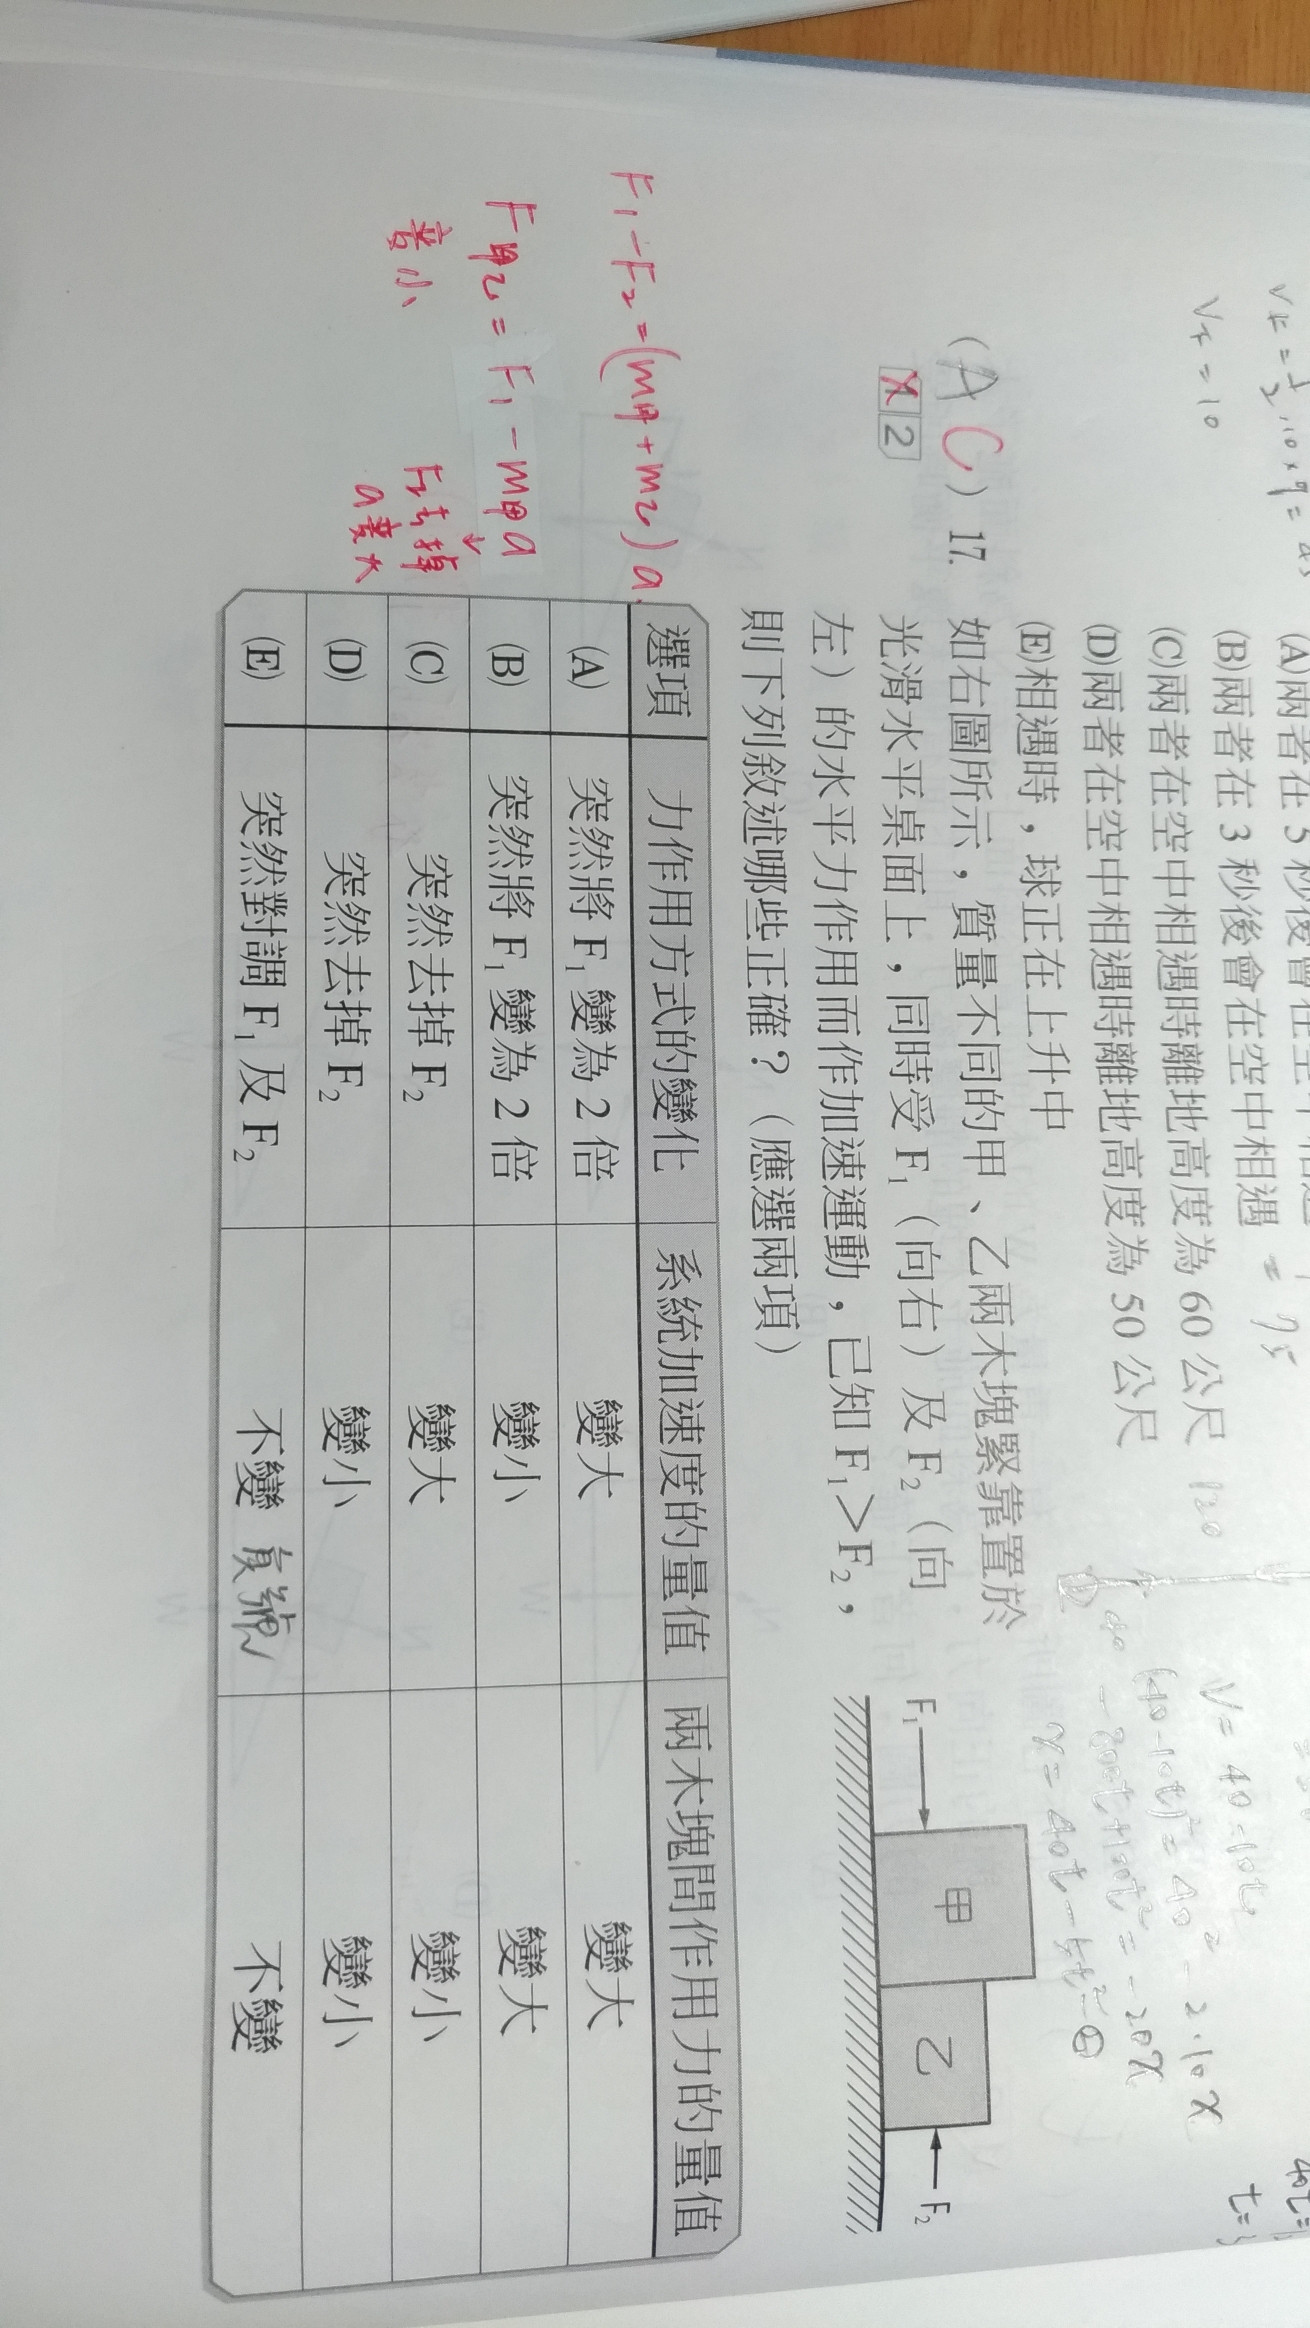 (B)兩者在 3 秒後會在空中相遇
(C)兩者在空中相遇時離地高度為 60 公尺
(D)兩者在空中相遇時離地高度為 50 公尺
(E)相遇時，球正在上升中
(AC) 17. 如右圖所示，質量不同的甲、乙兩木塊緊靠置於
光滑水平桌面上，同時受 F₁（向右）及 F₂（向
左）的水平力作用而作加速運動，已知 F₁＞F₂，
則下列敘述哪些正確？（應選兩項）
2
F₁ 甲 乙 F₂
選項 力作用方式的變化 系統加速度的量值 兩木塊間作用力的量值
(A) 突然將 F₁ 變為 2 倍 變大 變大
(B) 突然將 F₁ 變為 2 倍 變小 變大
(C) 突然去掉 F₂ 變大 變小
(D) 突然去掉 F₂ 變小 變小
(E) 突然對調 F₁ 及 F₂ 不變 負號 不變
F₁-F₂=(m甲+m乙)a
F甲乙=F₁-m甲a
F₂去掉
a變大
V=40-10t
(40-10t)²=40²-2·10x
-800t+100t²=-20x
120
Vt=10